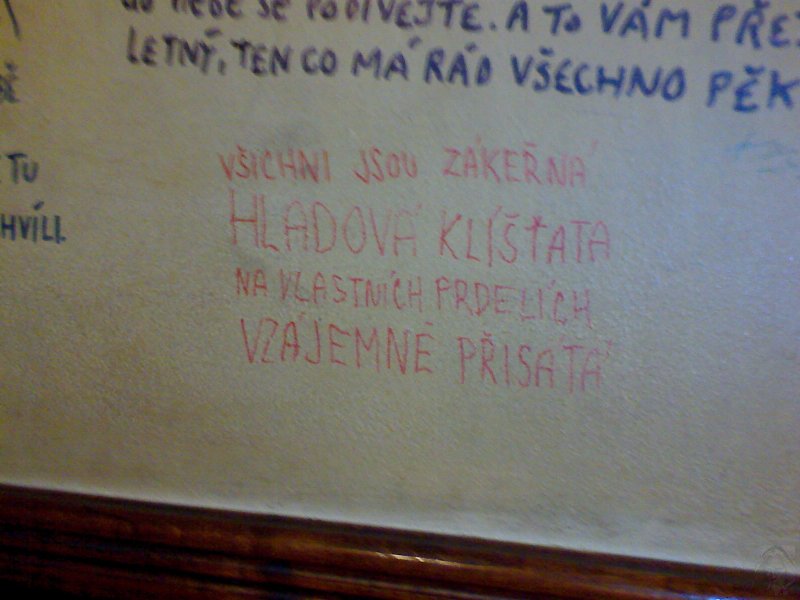 DO NEBE SE PODÍVEJTE. A TO VÁM PŘE
LETNÝ, TEN CO MÁ RÁD VŠECHNO PĚK
TU
HVÍLI.
VŠICHNI JSOU ZÁKEŘNÁ
HLADOVÁ KLÍŠŤATA
NA VLASTNÍCH PRDELÍCH
VZÁJEMNĚ PŘISÁTÁ